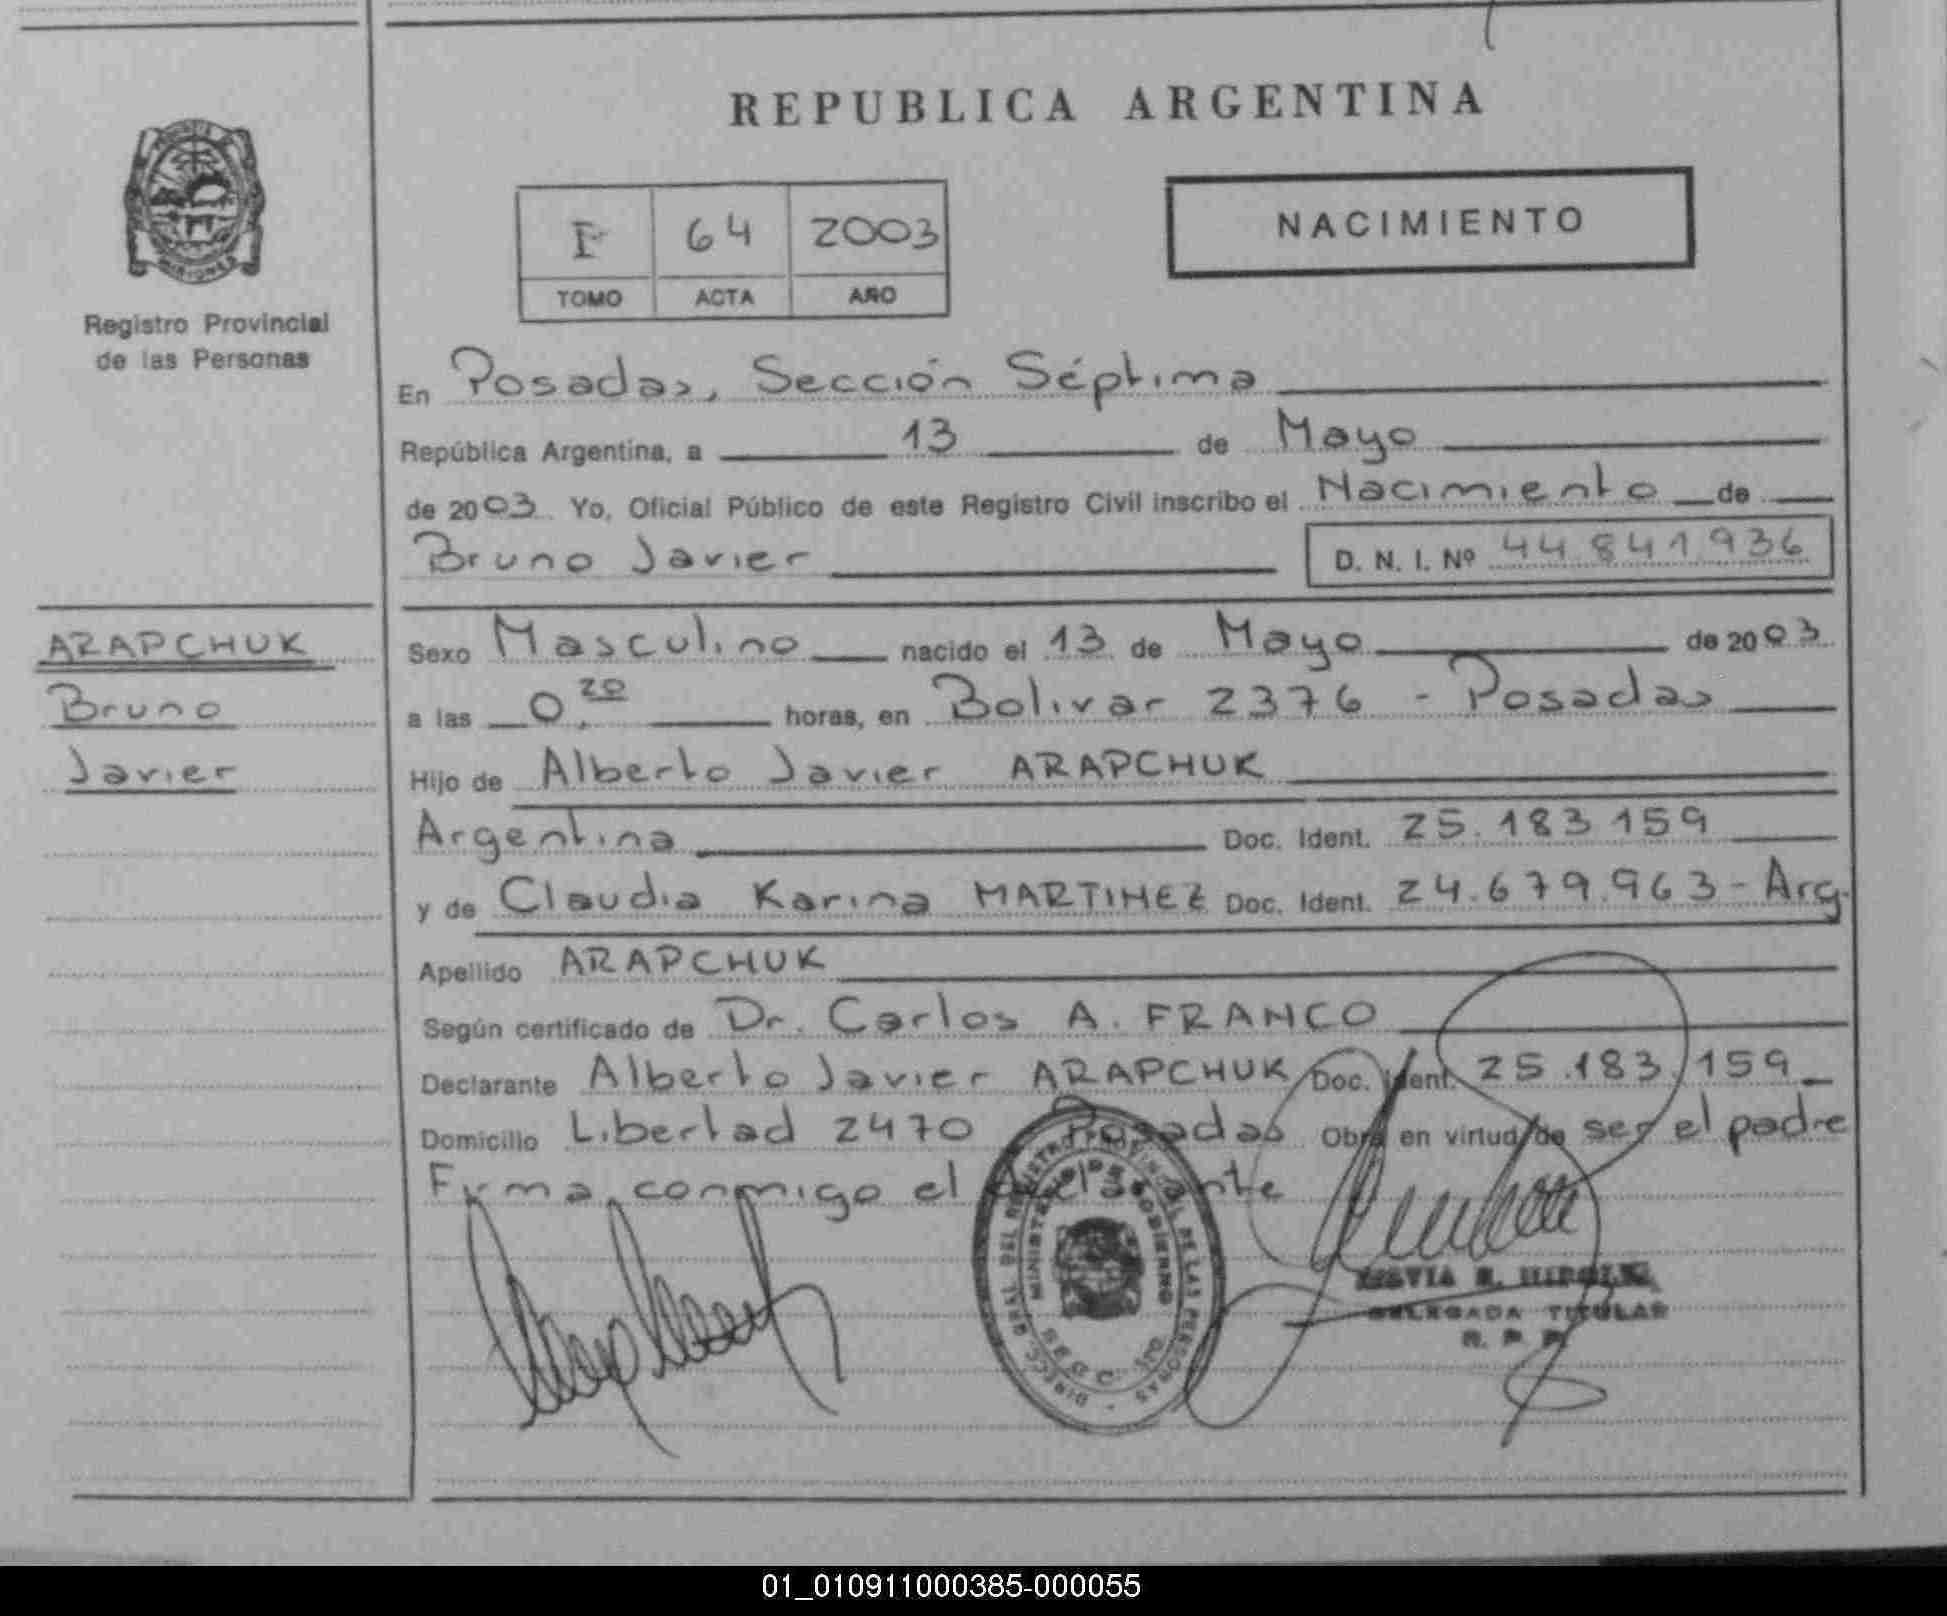 REPUBLICA ARGENTINA
MISIONES
Registro Provincial
de las Personas
I 64 2003
TOMO ACTA AÑO
NACIMIENTO
En Posadas, Sección Séptima
República Argentina, a 13 de Mayo
de 2003 Yo, Oficial Público de este Registro Civil inscribo el Nacimiento de
Bruno Javier
D. N. I. Nº 44.841.936
ARAPCHUK
Bruno
Javier
Sexo Masculino nacido el 13 de Mayo de 2003
a las 0.20 horas, en Bolivar 2376 - Posadas
Hijo de Alberto Javier ARAPCHUK
Argentina Doc. Ident. 25.183.159
y de Claudia Karina MARTINEZ Doc. Ident. 24.679.963 - Arg.
Apellido ARAPCHUK
Según certificado de Dr. Carlos A. FRANCO
Declarante Alberto Javier ARAPCHUK Doc. Ident. 25.183.159
Domicilio Libertad 2470 Posadas Obra en virtud de ser el padre
Firma conmigo el
DIRECC. GRAL DEL REGISTRO PROVINCIAL DE LAS PERSONAS
MINISTERIO DE GOBIERNO
DELEGADA TITULAR
R. P. P.
01_010911000385-000055